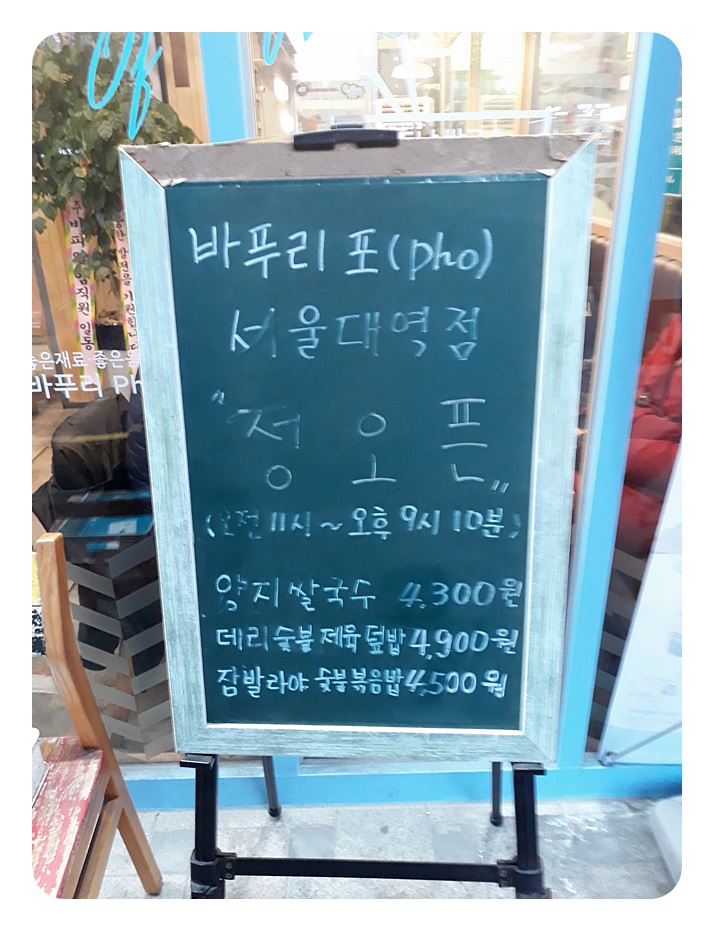 of
바푸리 포(pho)
서울대역점
"정오픈"
(오전 11시 ~ 오후 9시 10분)
양지쌀국수 4,300원
데리숯불제육덮밥 4,900원
잠발라야 숯불볶음밥 4,500원
임직원 일동
좋은재료 좋은음
바푸리 Ph